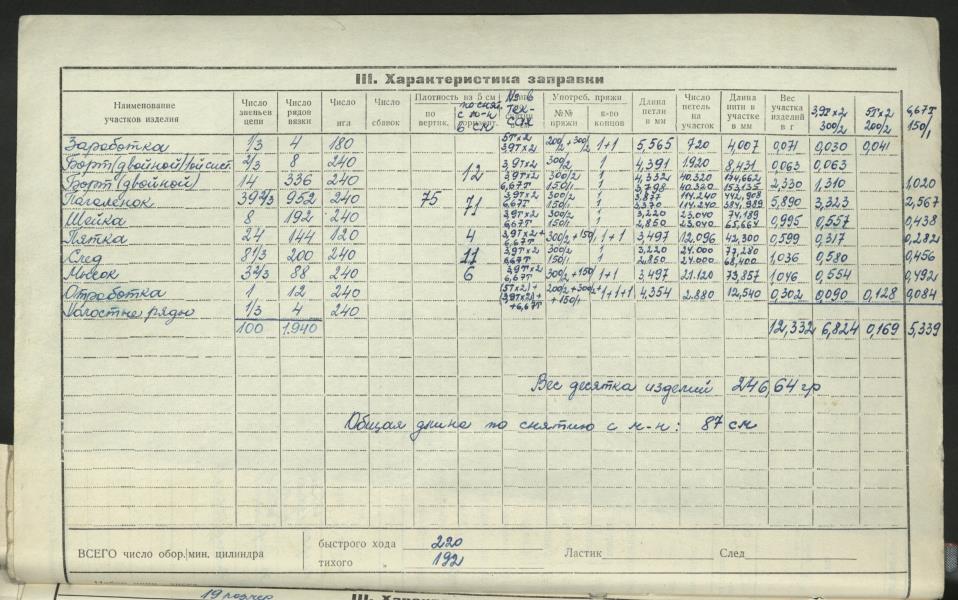 III. Характеристика заправки
Наименование участков изделия | Число звеньев цепи | Число рядов вязки | Число игл | Число сбавок | Плотность на 5 см по вертик. | горизонт. по снят. с м-н в см | № № нити в тек-сах | Употреб. пряжи №№ пряжи | к-во концов | Длина петли в мм | Число петель на участок | Длина нити в участке в мм | Вес участка изделий в г | 3,9Т×2 300/2 | 5Т×2 200/2 | 6,67Т 150/1
Заработка 1/3 4 180 5Т×2 3,9Т×2 200/2+300/2 1+1 5,565 720 4,007 0,071 0,030 0,041
Борт (двойной) 2/3 8 240 3,9Т×2 300/2 1 4,391 1.920 8,431 0,063 0,063
Борт (двойной) 14 336 240 12 3,9Т×2 6,67Т 300/2 150/1 1 1 4,332 3,798 40.320 40.320 174,662 153,135 2,330 1,310 1,020
Паголенок 39 2/3 952 240 75 71 3,9Т×2 6,67Т 300/2 150/1 1 1 3,877 3,370 114.240 114.240 442,908 384,989 5,890 3,323 2,567
Щейка 8 192 240 3,9Т×2 6,67Т 300/2 150/1 1 1 3,220 2,850 23.040 23.040 74,189 65,664 0,995 0,557 0,438
Пятка 24 144 120 4 3,9Т×2+ 6,67Т 300/2+150/1 1+1 3,497 12.096 42,300 0,599 0,317 0,282
След 8 1/3 200 240 11 3,9Т×2 6,67Т 300/2 150/1 1 1 3,220 2,850 24.000 24.000 77,280 68,400 1,036 0,580 0,456
Мысок 3 2/3 88 240 6 3,9Т×2 6,67Т 300/2+150/1 1+1 3,497 21.120 73,857 1,046 0,554 0,492
Отработка 1 12 240 (5Т×2)+ (3,9Т×2)+ +6,67Т 200/2+300/2+ +150/1 1+1+1 4,354 2.880 12,540 0,302 0,090 0,128 0,084
Холостые ряды 1/3 4 240
100 1.940 12,332 6,824 0,169 5,339
Вес десятка изделий 246,64 гр
Общая длина по снятию с м-н: 87 см
ВСЕГО число обор./мин. цилиндра быстрого хода 220 Ластик След
тихого 192
19 размер
III. Характе